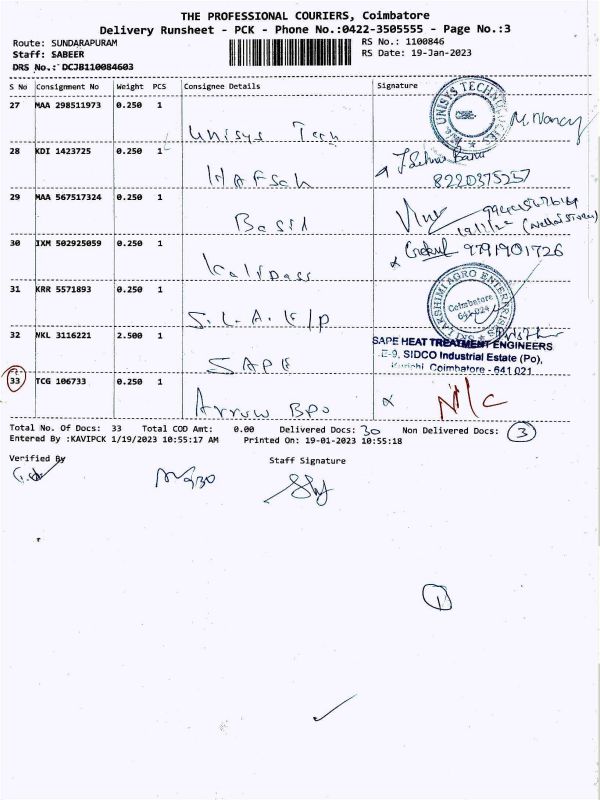 THE PROFESSIONAL COURIERS, Coimbatore
Delivery Runsheet - PCK - Phone No.:0422-3505555 - Page No.:3
Route: SUNDARAPURAM
RS No.: 1100846
Staff: SABEER
RS Date: 19-Jan-2023
DRS No.: DCJB110084603
S No Consignment No Weight PCS Consignee Details Signature
27 MAA 298511973 0.250 1
UNISYS TECHN
Unisys Tech M. Nancy
28 KDI 1423725 0.250 1
HAFSah 8220375257
29 MAA 567517324 0.250 1
30 IXM 502925059 0.250 1
Gokul 9791901726
Kalidass
31 KRR 5571893 0.250 1
SRI LAKSHIMI AGRO ENTERPRISES
Coimbatore
641 024
S.L.A. E/P
32 NKL 3116221 2.500 1
SAPE HEAT TREATMENT ENGINEERS
E-9, SIDCO Industrial Estate (Po),
Kurichi, Coimbatore - 641 021
SAPE
33 TCG 106733 0.250 1
Arrow BPO N/C
Total No. Of Docs: 33 Total COD Amt: 0.00 Delivered Docs: 30 Non Delivered Docs: 3
Entered By :KAVIPCK 1/19/2023 10:55:17 AM Printed On: 19-01-2023 10:55:18
Verified By Staff Signature
1